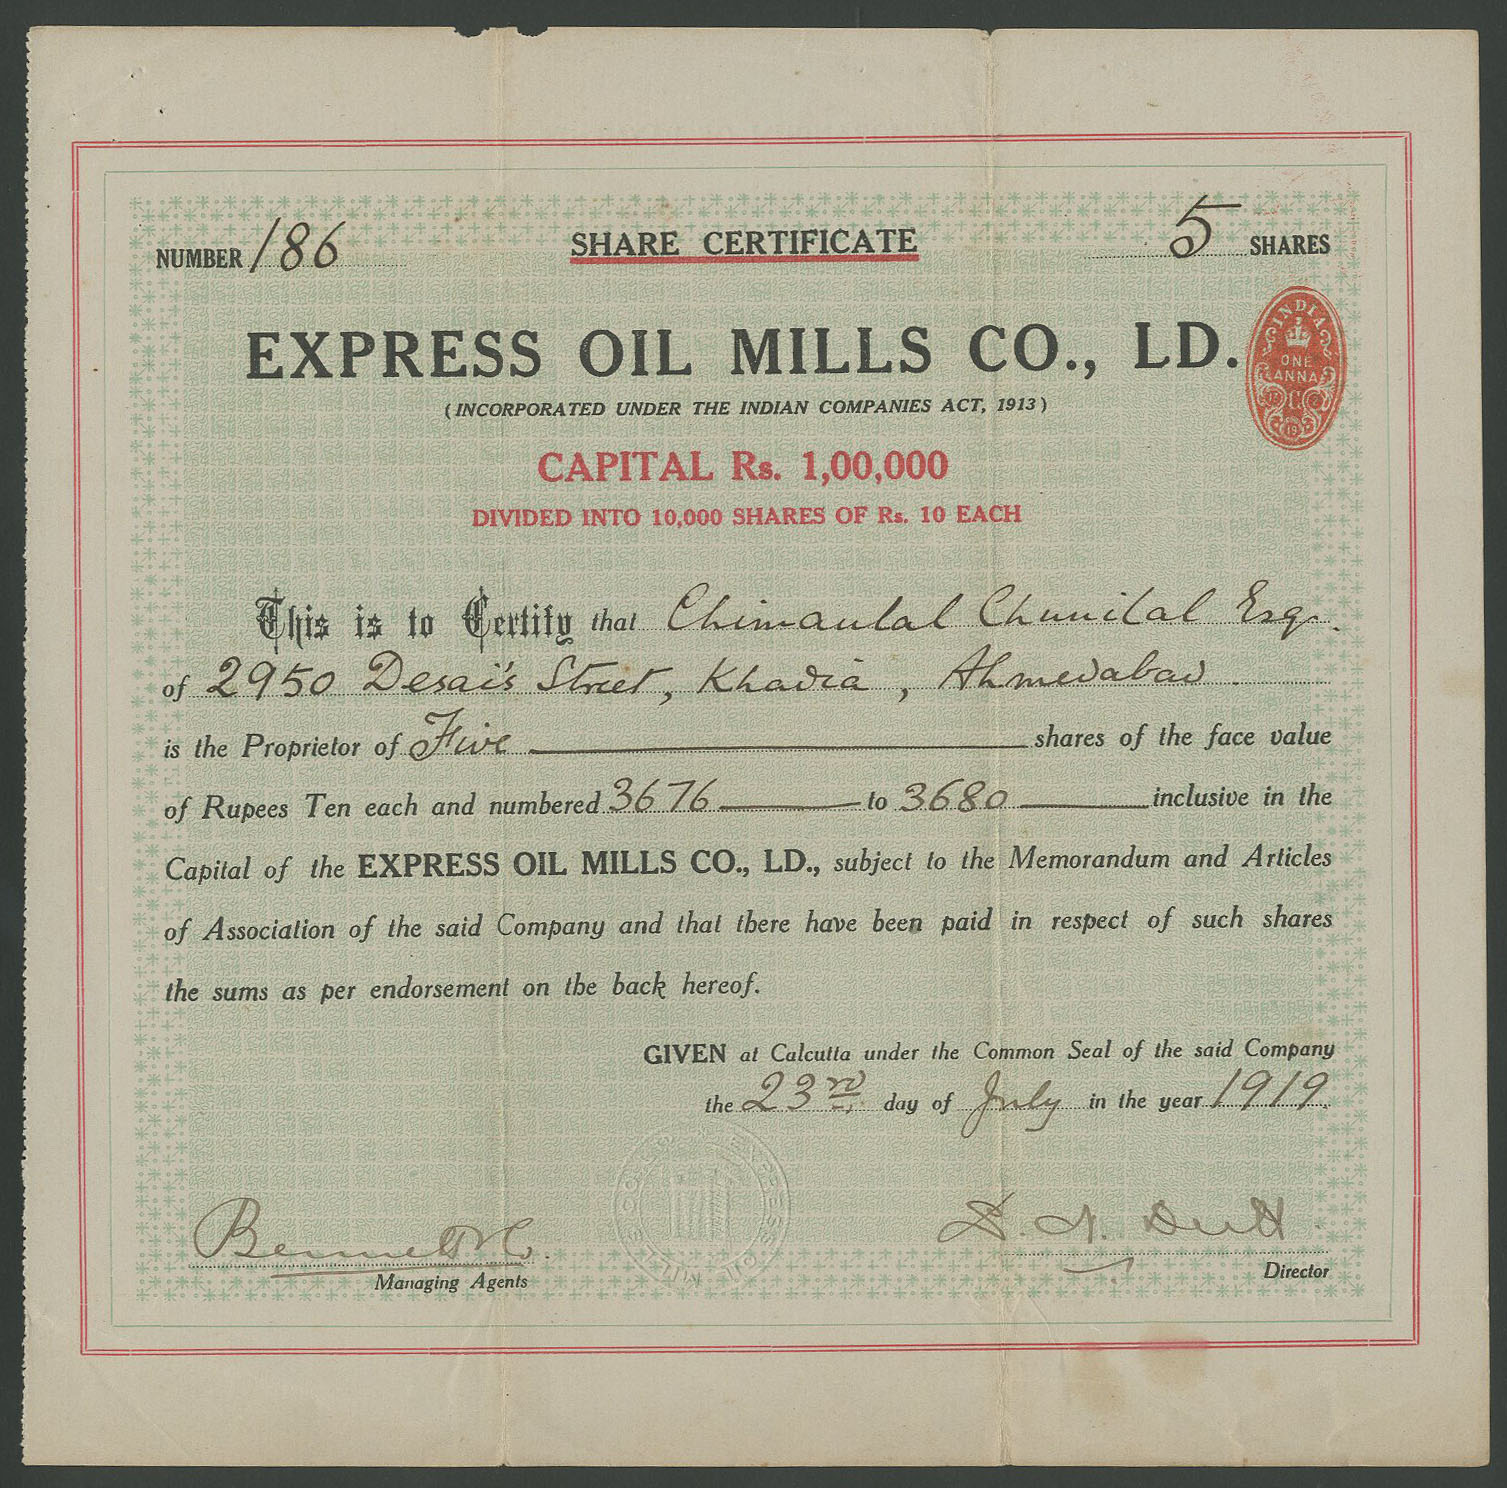 NUMBER 186 SHARE CERTIFICATE 5 SHARES
EXPRESS OIL MILLS CO., LD.
INDIA
ONE
ANNA
(INCORPORATED UNDER THE INDIAN COMPANIES ACT, 1913)
CAPITAL Rs. 1,00,000
DIVIDED INTO 10,000 SHARES OF Rs. 10 EACH
This is to Certify that Chimanlal Chunilal Esq.
of 2950 Desai's Street, Khadia, Ahmedabad.
is the Proprietor of Five shares of the face value
of Rupees Ten each and numbered 3676 to 3680 inclusive in the
Capital of the EXPRESS OIL MILLS CO., LD., subject to the Memorandum and Articles
of Association of the said Company and that there have been paid in respect of such shares
the sums as per endorsement on the back hereof.
GIVEN at Calcutta under the Common Seal of the said Company
the 23rd day of July in the year 1919.
EXPRESS OIL MILLS CO LD
Bennett & Co. S. N. Dutt
Managing Agents Director